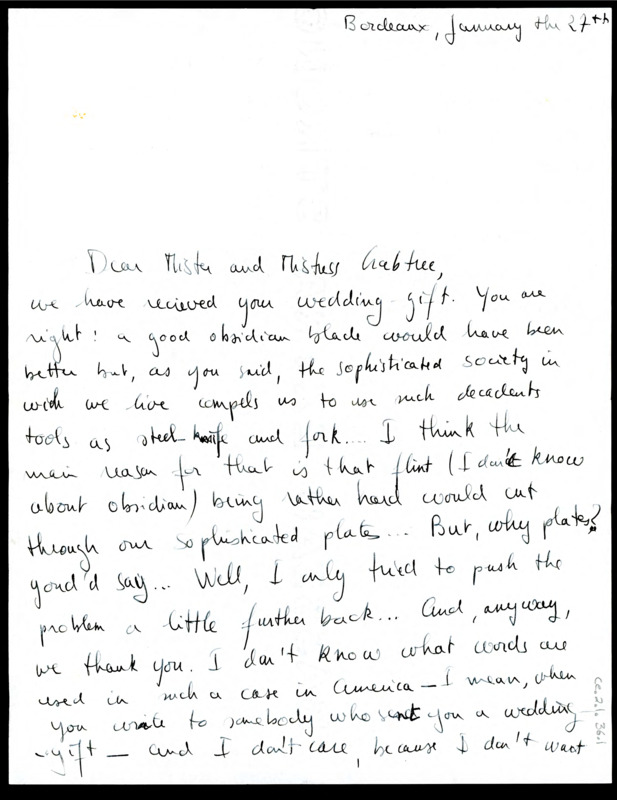 Bordeaux, January the 27th
Dear Mister and Mistress Crabtree,
we have recieved your wedding gift. You are
right! a good obsidian blade would have been
better but, as you said, the sophisticated society in
wich we live compels us to use such decadents
tools as steel knife and fork.... I think the
main reason for that is that flint (I don't know
about obsidian) being rather hard would cut
through our sophisticated plates... But, why plates?
youd'd say... Well, I only tried to push the
problem a little further back... And, anyway,
we thank you. I don't know what words are
used in such a case in America — I mean, when
you write to somebody who sent you a wedding
-gift — and I don't care, because I don't want
ce.2.1.36.1